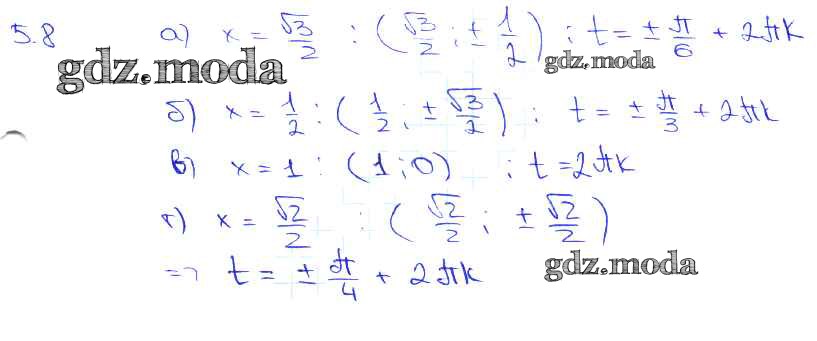 5.8 а) x = √3/2 : (√3/2 ; ± 1/2) ; t = ± π/6 + 2πk
gdz.moda
gdz.moda
б) x = 1/2 : (1/2 ; ± √3/2) ; t = ± π/3 + 2πk
в) x = 1 : (1 ; 0) ; t = 2πk
г) x = √2/2 : (√2/2 ; ± √2/2)
=> t = ± π/4 + 2πk
gdz.moda